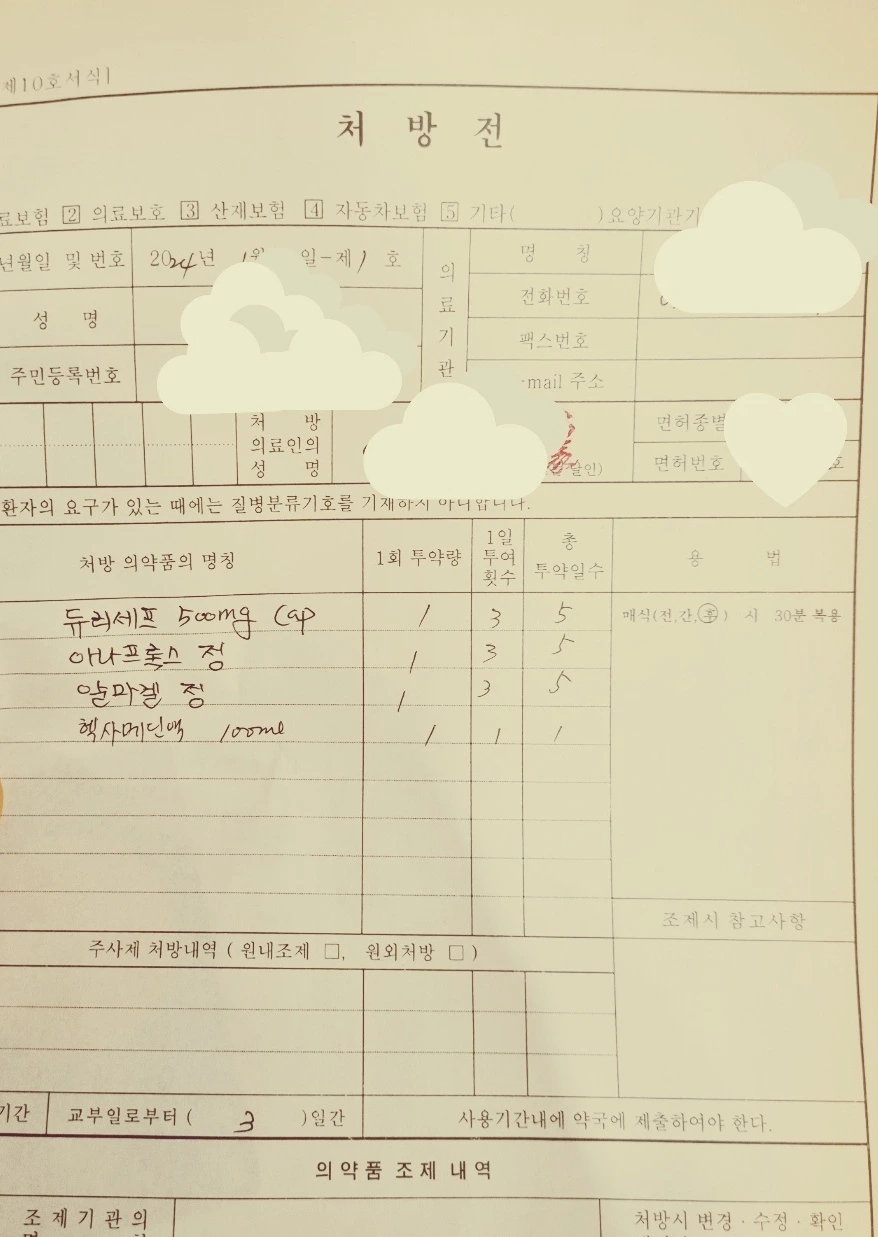 제10호서식]
처 방 전
료보험 2 의료보호 3 산재보험 4 자동차보험 5 기타( )요양기관기
년월일 및 번호 2024년 1월 일-제1 호
의료기관
명 칭
전화번호
성 명
팩스번호
주민등록번호
-mail 주소
처 방
의료인의
성 명
날인)
면허종별
면허번호 호
환자의 요구가 있는 때에는 질병분류기호를 기재하지 아니합니다.
처방 의약품의 명칭 1회 투약량 1일 투여 횟수 총 투약일수 용 법
듀리세프 500mg Cap 1 3 5 매식(전,간,후) 시 30분 복용
아나프록스 정 1 3 5
알마겔 정 1 3 5
헥사메딘액 100ml 1 1 1
조제시 참고사항
주사제 처방내역 ( 원내조제 □, 원외처방 □ )
기간 교부일로부터 ( 3 )일간 사용기간내에 약국에 제출하여야 한다.
의약품 조제 내역
조제기관의 처방시 변경·수정·확인